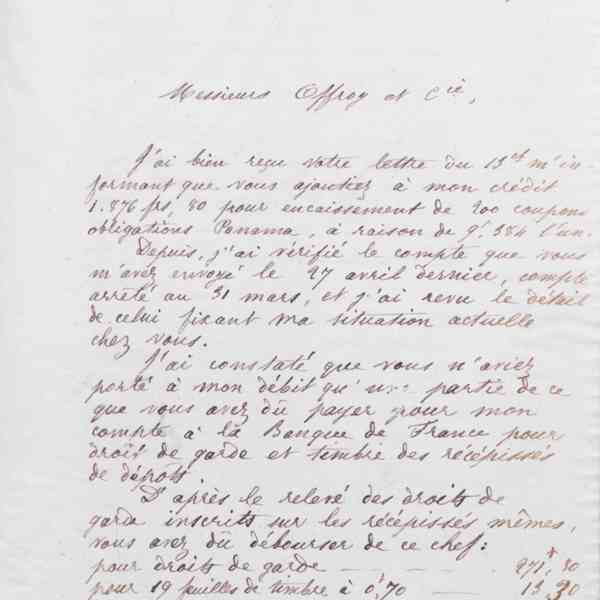 Messieurs Offroy et Cie,
J'ai bien reçu votre lettre du 13 ct m'in-
formant que vous ajoutiez à mon crédit
1.876 frs, 80 pour encaissement de 200 coupons
obligations Panama, à raison de 9f 384 l'un.
Depuis, j'ai vérifié le compte que vous
m'avez envoyé le 27 avril dernier, compte
arrêté au 31 mars, et j'ai revu le détail
de celui fixant ma situation actuelle
chez vous.
J'ai constaté que vous n'aviez
porté à mon débit qu'une partie de ce
que vous avez dû payer pour mon
compte à la Banque de France pour
droit de garde et timbre des récépissés
de dépôts.
D'après le relevé des droits de
garde inscrits sur les récépissés mêmes,
vous avez dû débourser de ce chef:
pour droits de garde 271f, 80
pour 19 feuilles de timbre à 0f,70 13 30